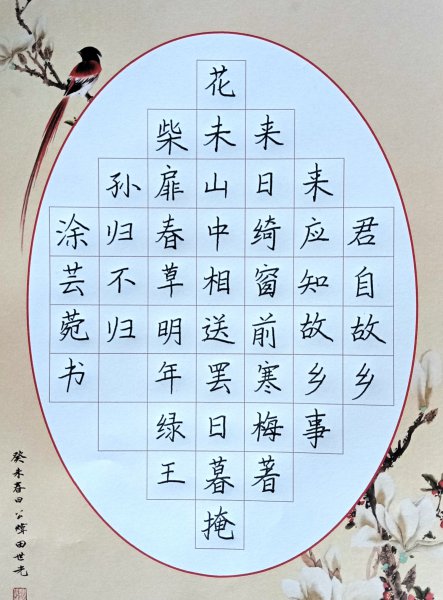 君自故乡
来应知故乡事
来日绮窗前寒梅著
花未山中相送罢日暮掩
柴扉春草明年绿王
孙归不归
涂芸菀书
癸未春日公煒田世光